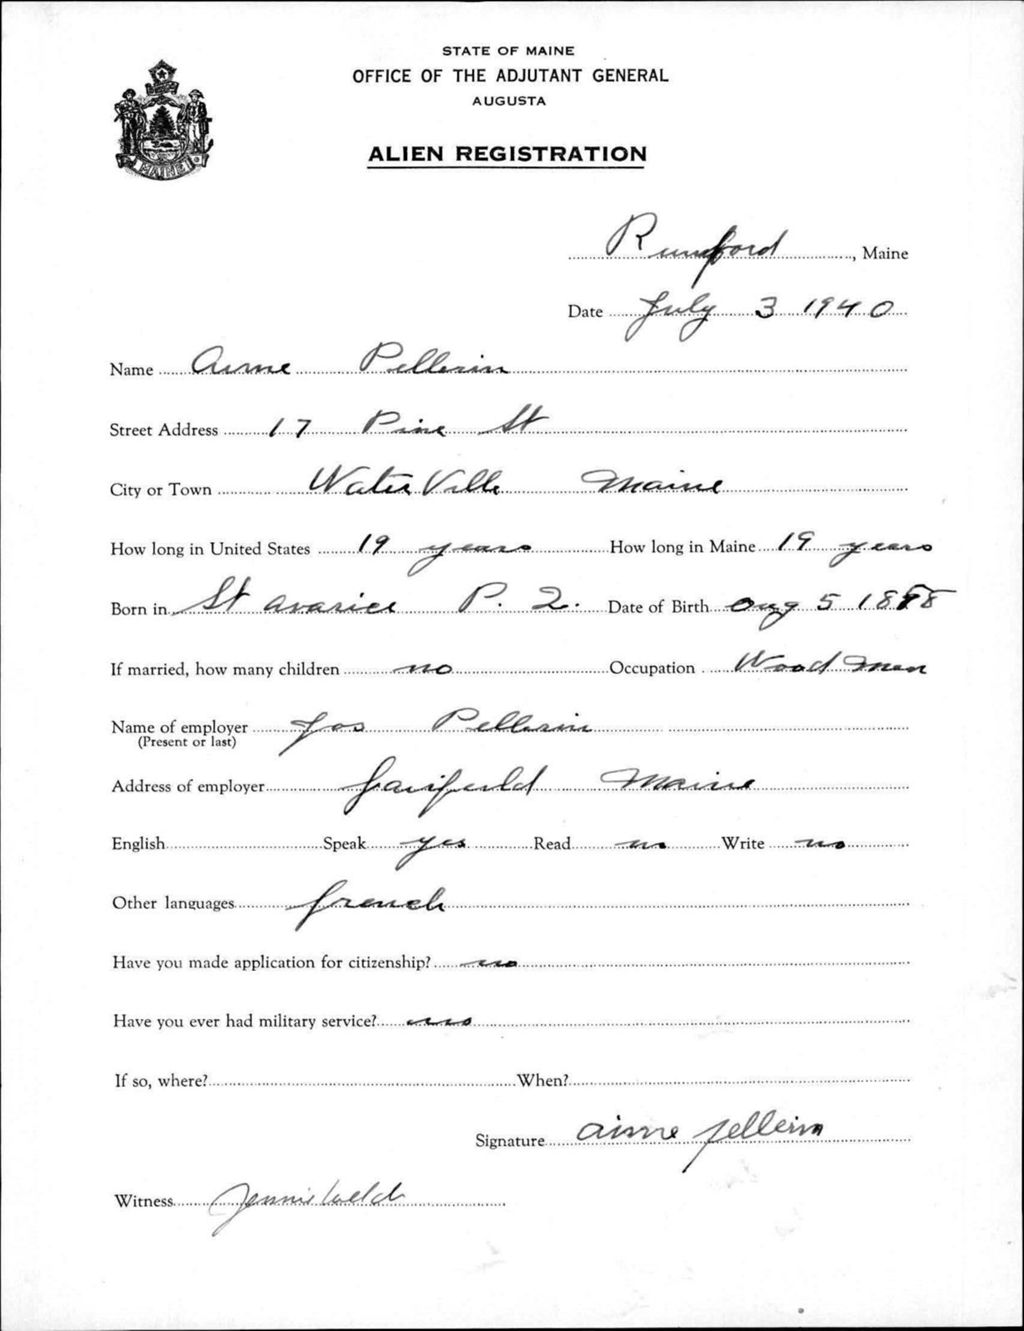 STATE OF MAINE
OFFICE OF THE ADJUTANT GENERAL
AUGUSTA
ALIEN REGISTRATION
MAINE
Rumford, Maine
Date July 3 1940
Name Aime Pellerin
Street Address 17 Pine St
City or Town WaterVille Maine
How long in United States 19 years How long in Maine 19 years
Born in St P. Q. Date of Birth Aug 5 1898
If married, how many children no Occupation Wood man
Name of employer Jos Pellerin
(Present or last)
Address of employer Maine
English Speak yes Read no Write no
Other languages french
Have you made application for citizenship? no
Have you ever had military service? no
If so, where? When?
Signature aime pellerin
Witness Jennie Weld